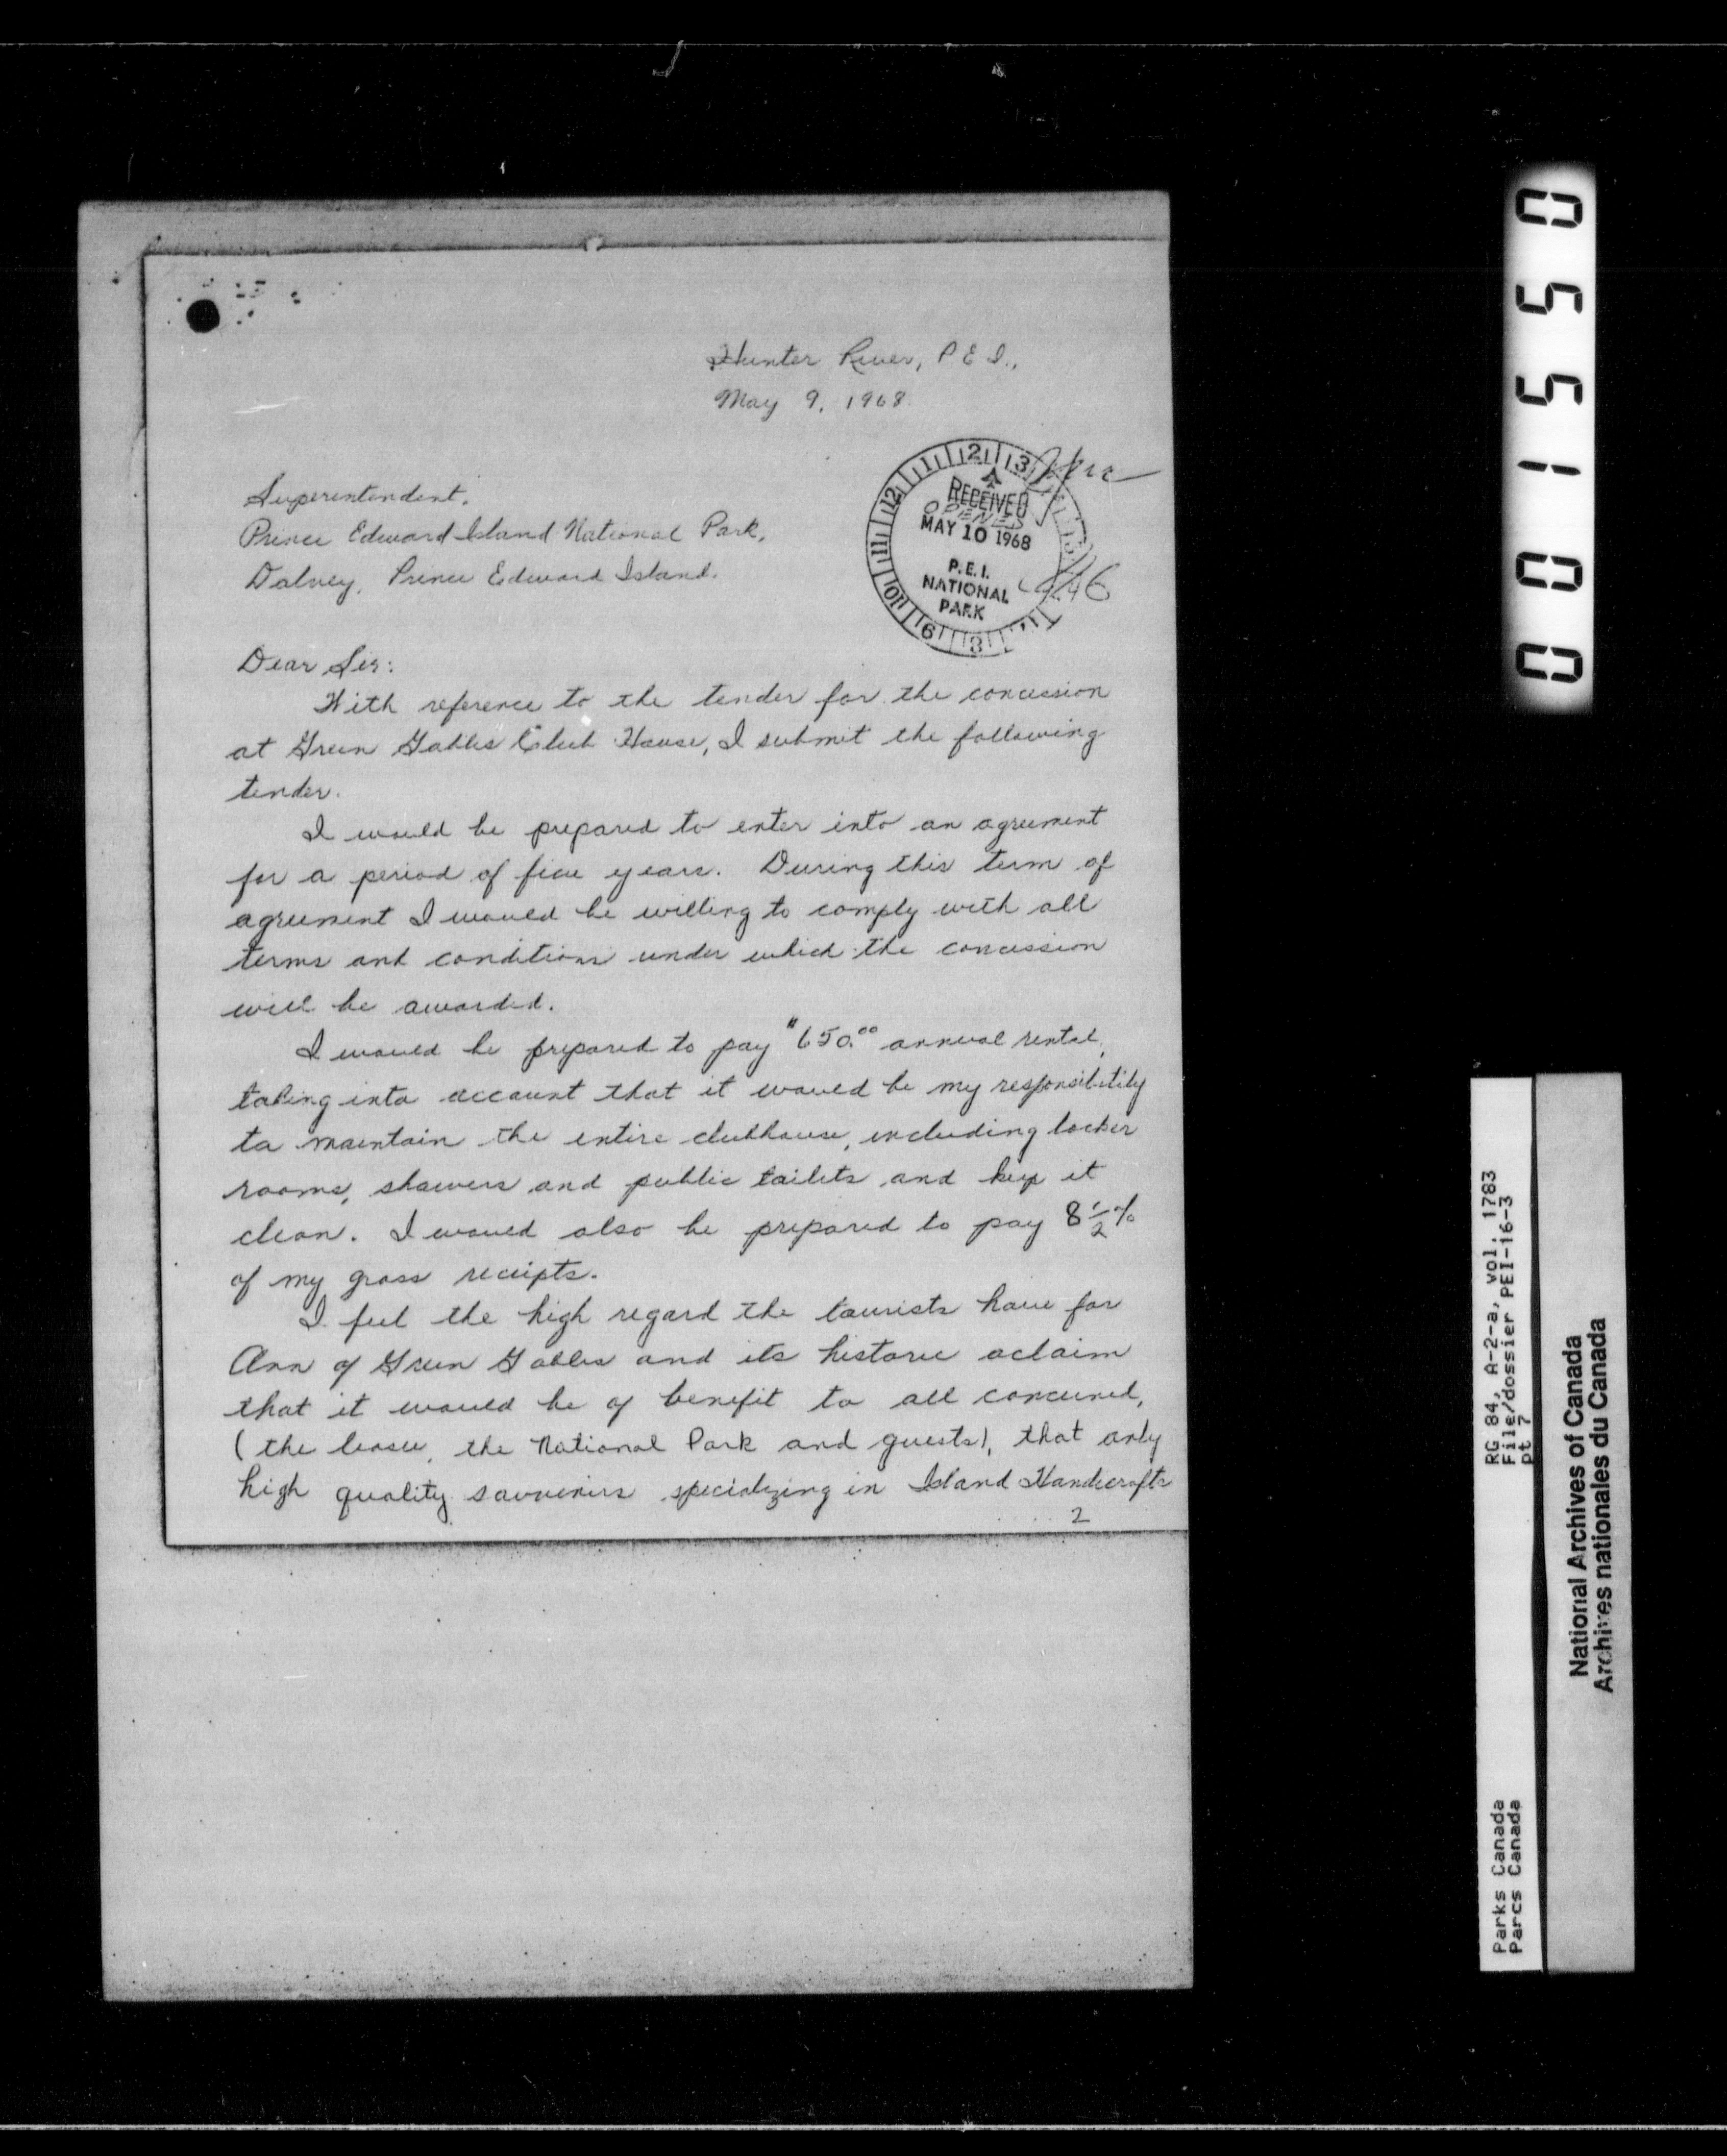 Hunter River, P E I.,
May 9, 1968
Superintendent,
Prince Edward Island National Park,
Dalvey, Prince Edward Island.
12 1 2 3
RECEIVED
OPENED
MAY 10 1968
P.E.I.
NATIONAL
PARK
Dear Sir:
With reference to the tender for the concession
at Green Gables Club House, I submit the following
tender.
I would be prepared to enter into an agreement
for a period of five years. During this term of
agreement I would be willing to comply with all
terms and conditions under which the concession
will be awarded.
I would be prepared to pay "650.00 annual rental,
taking into account that it would be my responsibility
to maintain the entire clubhouse, including locker
rooms, showers and public toilets and keep it
clean. I would also be prepared to pay 8 1/2 %
of my gross receipts.
I feel the high regard the tourists have for
Ann of Green Gables and its historic aclaim
that it would be of benefit to all concerned,
(the leasee, the National Park and guests), that only
high quality souvenirs specializing in Island Handicrafts
.... 2
001550
RG 84, A-2-a, vol. 1783
File/dossier PEI-16-3
pt 7
Parks Canada
Parcs Canada
National Archives of Canada
Archives nationales du Canada